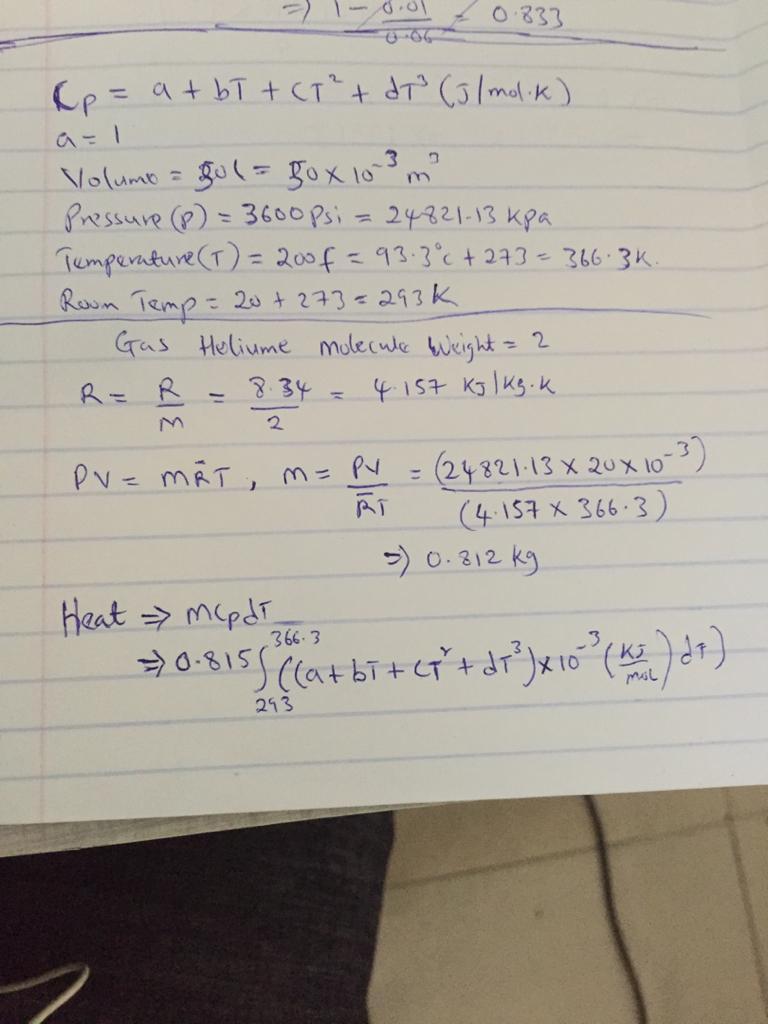 => 1 - 0.01/0.06 = 0.833
Cp = a + bT + cT² + dT³ (J/mol.K)
a = 1
Volume = 50l = 50 x 10⁻³ m³
Pressure (p) = 3600 psi = 24821.13 kpa
Temperature (T) = 200f = 93.3°c + 273 = 366.3K.
Room Temp = 20 + 273 = 293K
Gas Heliume molecule weight = 2
R = R/M = 8.34/2 = 4.157 KJ/Kg.K
PV = mR̄T, m = PV/R̄T = (24821.13 x 20 x 10⁻³)/(4.157 x 366.3)
=> 0.812 kg
Heat => mCpdT
=> 0.815 ∫₂₉₃³⁶⁶·³ ((a + bT + cT² + dT³) x 10⁻³ (KJ/mol) dT)